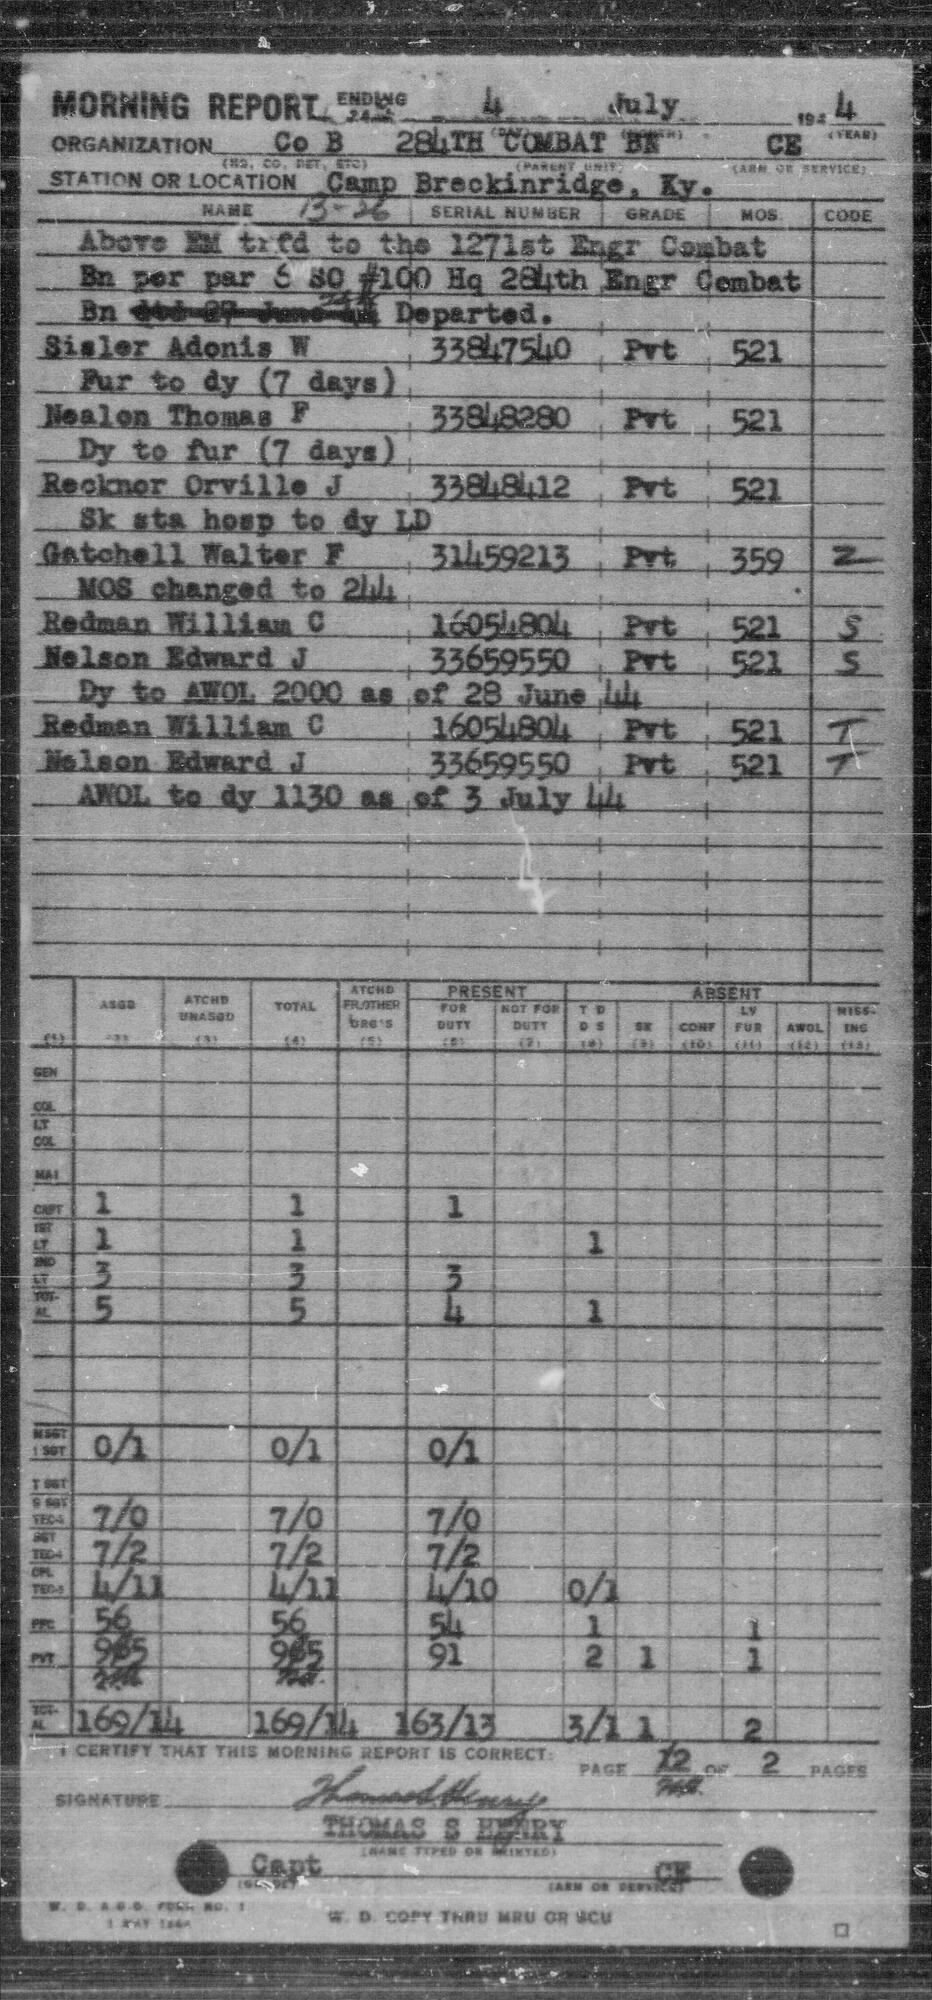 MORNING REPORT ENDING 2400 4 July 1944
(DAY) (MONTH) (YEAR)
ORGANIZATION Co B 284TH COMBAT BN CE
(HQ, CO, DET, ETC) (PARENT UNIT) (ARM OR SERVICE)
STATION OR LOCATION Camp Breckinridge, Ky.
NAME 13-26 SERIAL NUMBER GRADE MOS CODE
Above EM trfd to the 1271st Engr Combat
Bn per par 6 SO #100 Hq 284th Engr Combat
Bn dtd 27 June 44 Departed.
Sisler Adonis W 33847540 Pvt 521
Fur to dy (7 days)
Nealon Thomas F 33848280 Pvt 521
Dy to fur (7 days)
Recknor Orville J 33848412 Pvt 521
Sk sta hosp to dy LD
Gatchell Walter F 31459213 Pvt 359 Z
MOS changed to 244
Redman William C 16054804 Pvt 521 S
Nelson Edward J 33659550 Pvt 521 S
Dy to AWOL 2000 as of 28 June 44
Redman William C 16054804 Pvt 521 T
Nelson Edward J 33659550 Pvt 521 T
AWOL to dy 1130 as of 3 July 44
PRESENT ABSENT
ASGD ATCHD UNASGD TOTAL ATCHD FR/OTHER ORG'S FOR DUTY NOT FOR DUTY T D D S SK CONF LV FUR AWOL MISSING
(1) (2) (3) (4) (5) (6) (7) (8) (9) (10) (11) (12) (13)
GEN
COL
LT COL
MAJ
CAPT 1 1 1
1ST LT 1 1 1
2ND LT 3 3 3
TOTAL 5 5 4 1
M SGT 1 SGT 0/1 0/1 0/1
T SGT
S SGT TEC-3 7/0 7/0 7/0
SGT TEC-4 7/2 7/2 7/2
CPL TEC-5 4/11 4/11 4/10 0/1
PFC 56 56 54 1 1
PVT 95 95 91 2 1 1
TOTAL 169/14 169/14 163/13 3/1 1 2
I CERTIFY THAT THIS MORNING REPORT IS CORRECT:
PAGE 2 OF 2 PAGES
SIGNATURE Thomas S Henry
THOMAS S HENRY
(NAME TYPED OR PRINTED)
Capt CE
(GRADE) (ARM OR SERVICE)
W. D. A.G.O. FORM NO. 1
W. D. COPY THRU MRU OR SCU